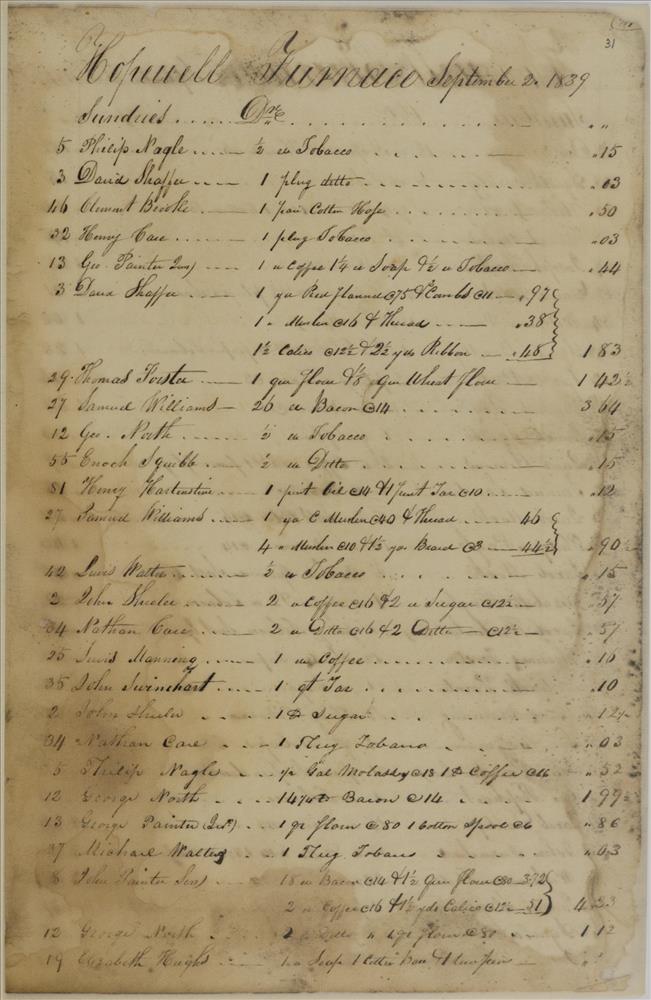 31
Hopewell Furnace September 2. 1839
Sundries Drs
5 Philip Nagle ½ lb Tobacco .15
3 David Shaffer 1 plug ditto .03
46 Clement Brooke 1 pair Cotton Hose .50
32 Henry Care 1 plug Tobacco .03
13 Geo. Painter Junr 1 lb Coffee 1¼ lb Soap & ½ lb Tobacco .44
3 David Shaffer 1 yd Red flannel @75 & Combs @11 .97
1 " Muslin @16 & Thread .38
1½ Calico @12½ & 2½ yds Ribbon .48 1 83
29 Thomas Foster 1 qur flour & ⅛ Qur Wheat flour 1 42½
27 Samuel Williams 26 lb Bacon @14 3 64
12 Geo. North ½ lb Tobacco .15
55 Enoch Squibb ½ lb Ditto .15
81 Henry Hartenstine 1 pint Oil @14 & 1 pint Tar @10 .12
27 Samuel Williams 1 yd C Muslin @40 & Thread 46
4 " Muslin @10 & 1½ yds Braid @3 44½ .90½
42 Lewis Walter ½ lb Tobacco .15
2 John Sheeler 2 " Coffee @16 & 2 lb Sugar @12½ .57
34 Nathan Care 2 lb Ditto @16 & 2 Ditto @12½ .57
25 Lewis Manning 1 lb Coffee .16
35 John Swinehart 1 qt Tar .10
2 John Sheeler 1 lb Sugar .12½
34 Nathan Care 1 Plug Tobacco .03
5 Philip Nagle Gal Molasses 1 lb Coffee @16 .52
12 George North 14¼ lb Bacon @14 1 99½
13 George Painter (Junr) 1 qr flour @80 1 Cotton Spool @6 .86
37 Michael Walters 1 Plug Tobacco .03
8 John Painter Senr 18 lb Bacon @14 & 1½ Qur flour @80 3.72
2 lb Coffee @16 & 1½ yds Calico @12½ 51 4 23
12 George North 2 Ditto " 1 qr flour @80 1 12
19 Elizabeth Hughs 1 lb Soap 1 Cotton